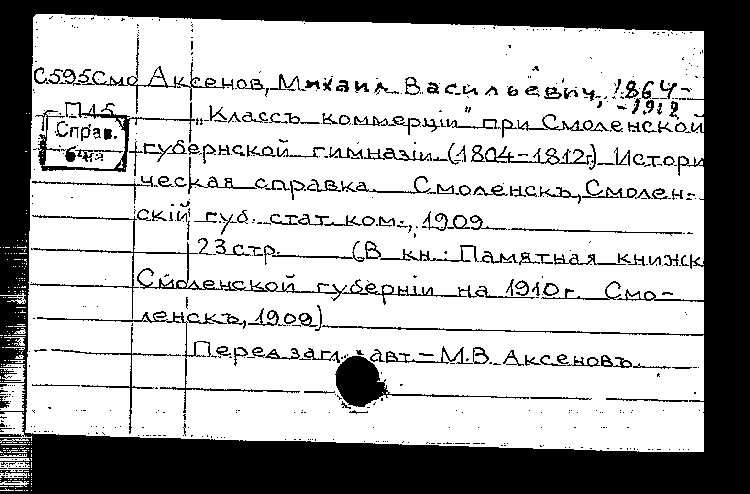 С595Смо Аксенов, Михаил Васильевич, 1864-
-1912
П15 „Классъ коммерціи" при Смоленской
Справ.
б-чка
губернской гимназіи. (1804-1812г.) Истори
ческая справка. Смоленскъ, Смолен-
скій губ. стат. ком., 1909.
23 стр. (В кн.: Памятная книжк
Смоленской губерніи на 1910 г. Смо-
ленскъ, 1909)
Перед загл. авт. - М.В. Аксеновъ.